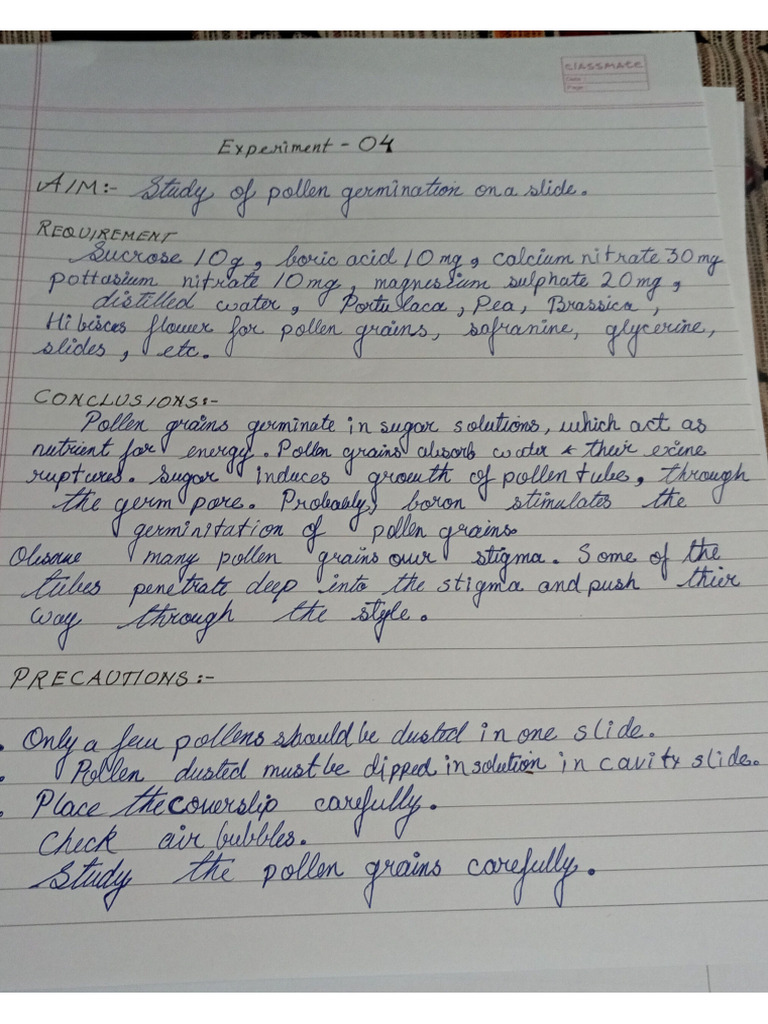 CLASSMATE
Date :
Page :
Experiment - 04
AIM:- Study of pollen germination on a slide.
REQUIREMENT
Sucrose 10g, boric acid 10 mg, calcium nitrate 30 mg
pottasium nitrate 10 mg, magnesium sulphate 20 mg,
distilled water, Portulaca, Pea, Brassica,
Hibisces flower for pollen grains, safranine, glycerine,
slides, etc.
CONCLUSIONS:-
Pollen grains germinate in sugar solutions, which act as
nutrient for energy. Pollen grains absorb water & their exine
ruptures. Sugar induces growth of pollen tube, through
the germ pore. Probably, boron stimulates the
germinitation of pollen grains.
Observe many pollen grains our stigma. Some of the
tubes penetrate deep into the stigma and push thier
way through the style.
PRECAUTIONS:-
. Only a few pollens should be dusted in one slide.
. Pollen dusted must be dipped in solution in cavity slide.
. Place the coverslip carefully.
Check air bubbles.
Study the pollen grains carefully.